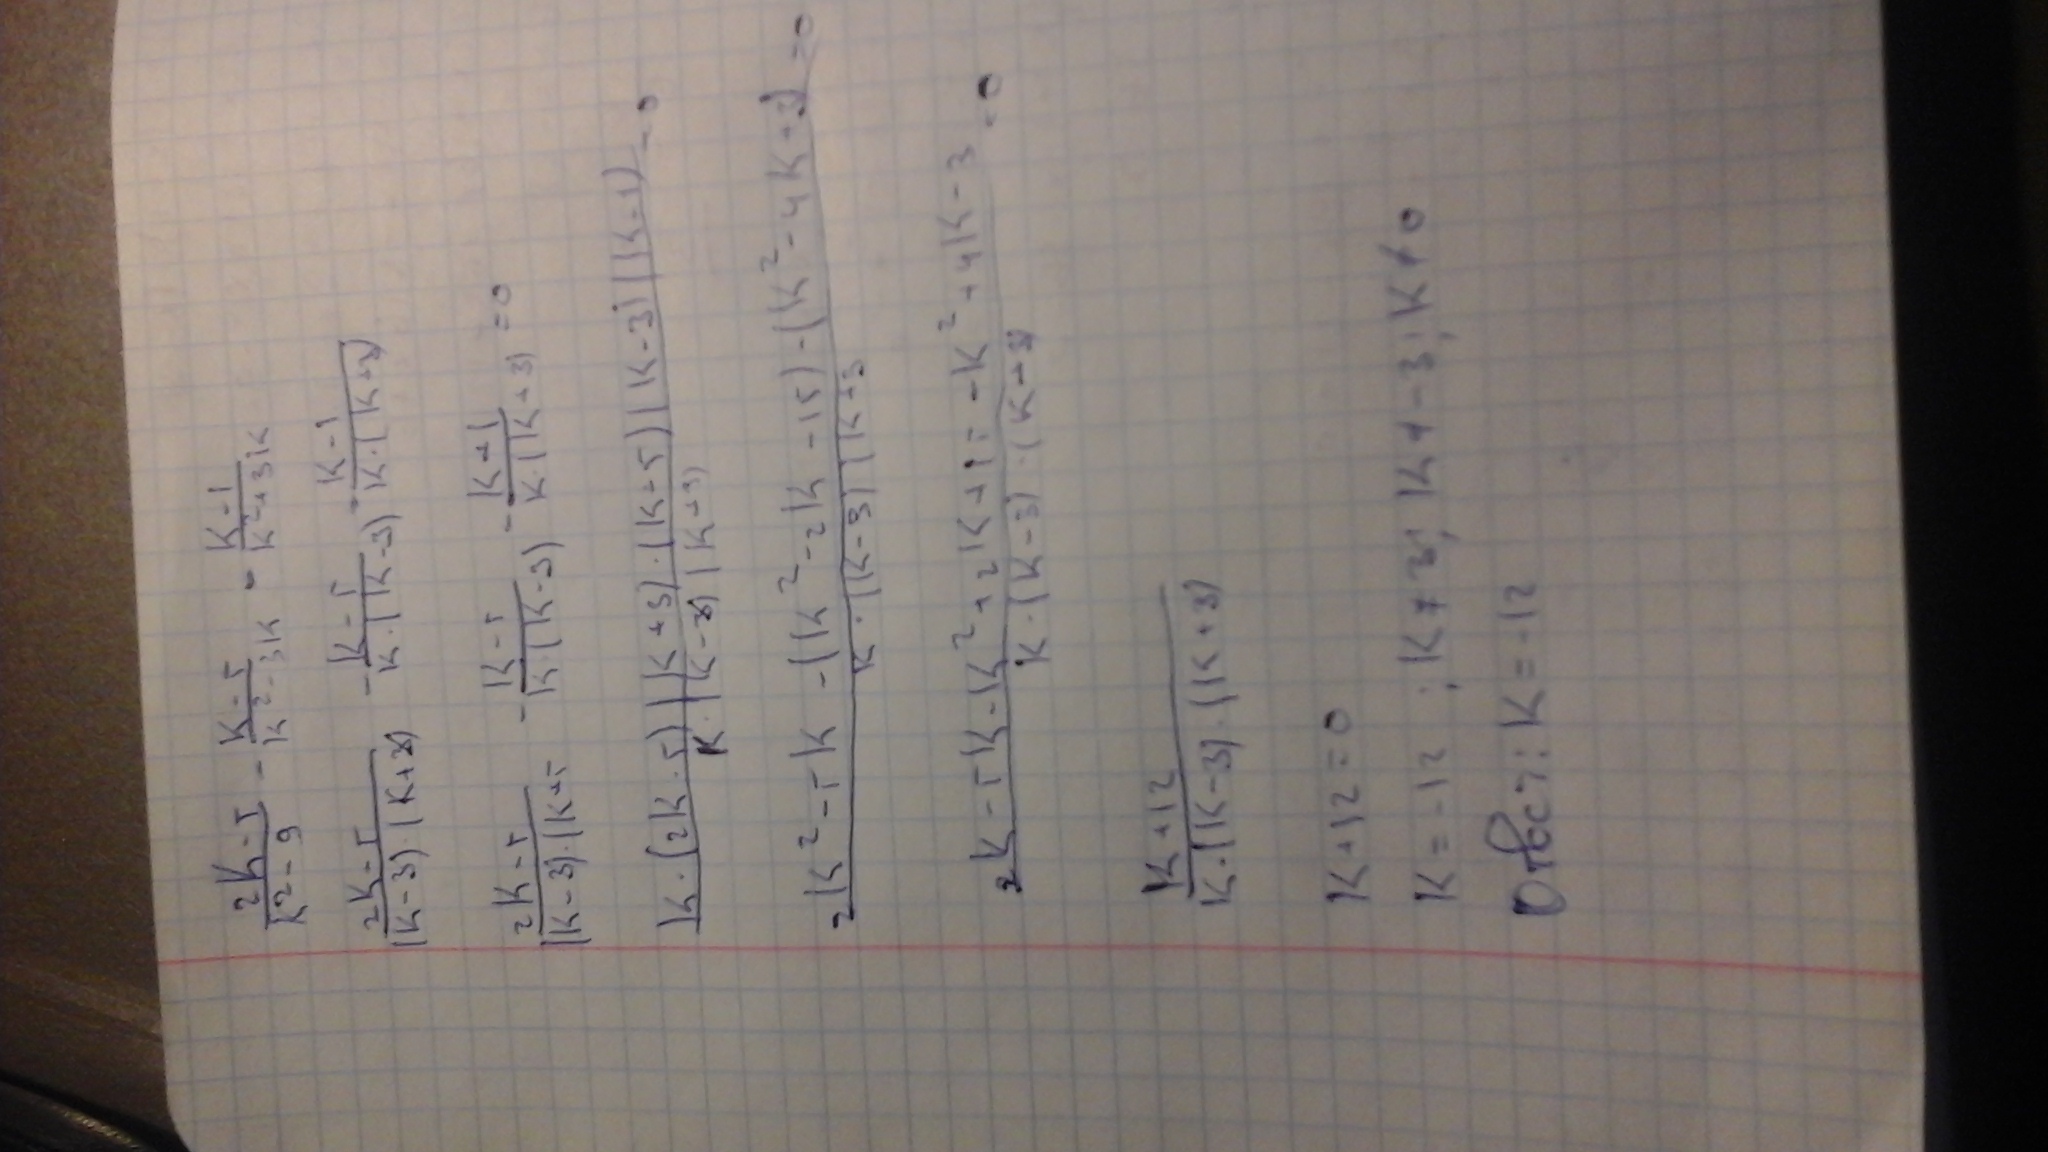 (2K-5)/(K²-9) - (K-5)/(K²-3K) = (K-1)/(K²+3K)
(2K-5)/((K-3)·(K+3)) - (K-5)/(K·(K-3)) = (K-1)/(K·(K+3))
(2K-5)/((K-3)·(K+5) - (K-5)/(K(K-3)) - (K+1)/(K·(K+3)) = 0
(K·(2K-5)(K+3)·(K-5)(K-3)(K-1))/(K·(K-3)(K+3)) = 0
(2K²-5K-(K²-2K-15)-(K²-4K+3))/(K·(K-3)(K+3) = 0
(2K-5K-K²+2K+15-K²+4K-3)/(K·(K-3)·(K+3)) = 0
(K+12)/(K·(K-3)·(K+3))
K+12=0
K=-12 ; K≠3; K≠-3; K≠0
Ответ: K=-12